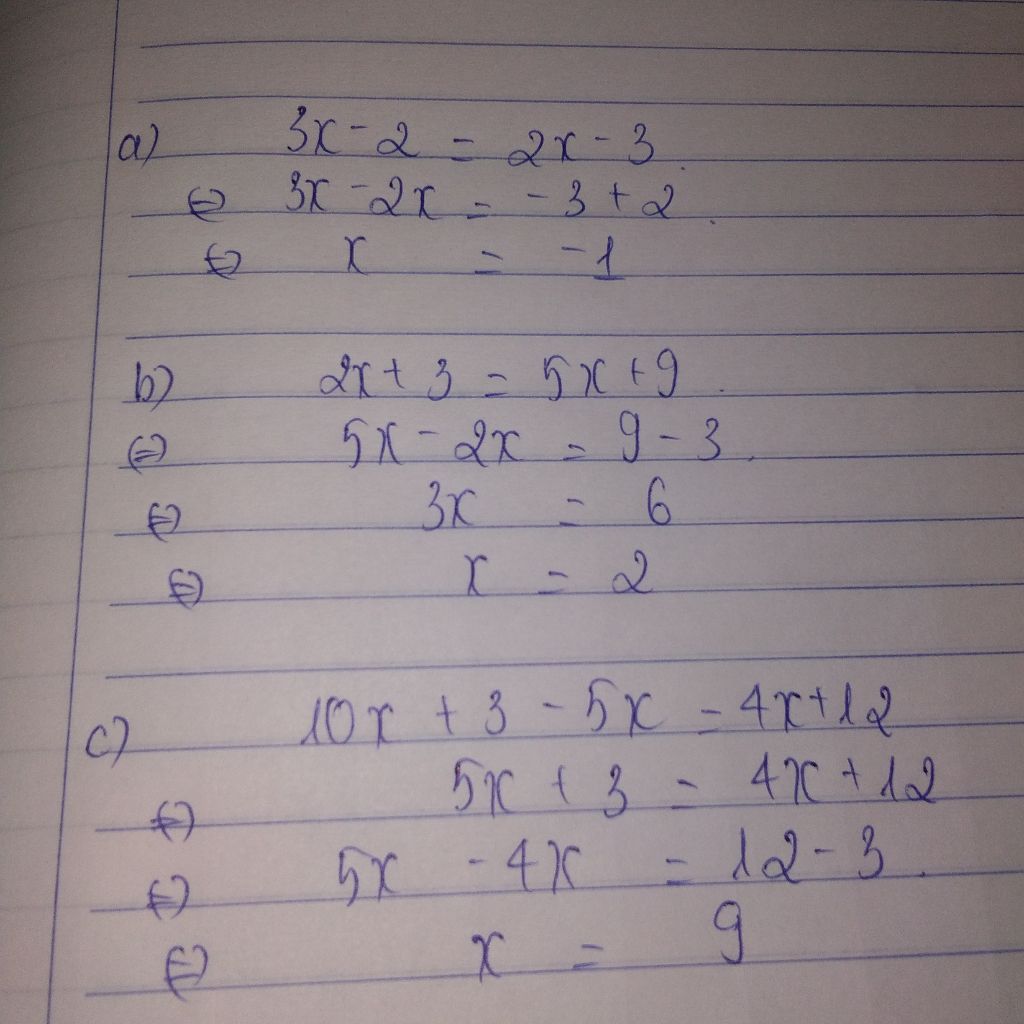 a) 3x - 2 = 2x - 3.
⇔ 3x - 2x = - 3 + 2.
⇔ x = - 1
b) 2x + 3 = 5x + 9.
⇔ 5x - 2x = 9 - 3.
⇔ 3x = 6
⇔ x = 2
c) 10x + 3 - 5x = 4x + 12
⇔ 5x + 3 = 4x + 12
⇔ 5x - 4x = 12 - 3.
⇔ x = 9